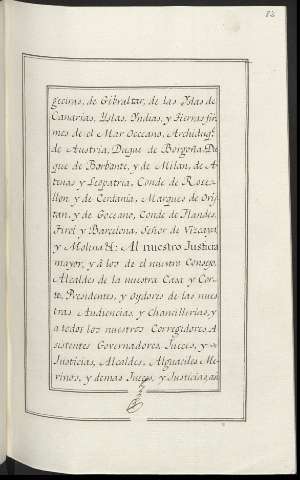 82
geciras, de Gibraltar, de las Yslas de
Canarias, Yslas, Yndias, y Tierras fir,
mes de el Mar Occeano, Archidug.e
de Austria, Duque de Borgoña, Du
que de Borbante, y de Milan, de A,
tenas y Leopatria, Conde de Rosel,
llon y de Cerdania, Marques de Oris
tan, y de Goceano, Conde de Flandes,
Tirol y Barcelona, Señor de Vizcaya,
y Molina &: Al nuestro Justicia
mayor, y à los de el nuestro Consejo,
Alcaldes de la nuestra Casa y Cor,
te, Presidentes, y Oydores de las nues
tras Audiencias, y Chancillerias, y
a todos los nuestros Corregidores, A
sistentes Governadores, Jueces, y
Justicias, Alcaldes, Alguaciles Me
rinos, y demas Jueces, y Justicias, asi